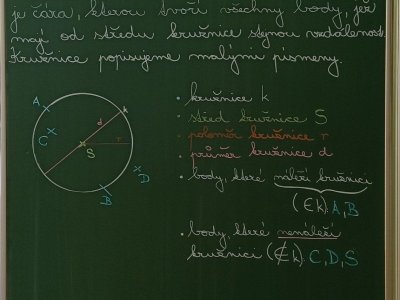 je čára, kterou tvoří všechny body, jež
mají od středu kružnice stejnou vzdálenost.
Kružnice popisujeme malými písmeny.
A
k
d
C
r
S
D
B
• kružnice k
• střed kružnice S
• poloměr kružnice r
• průměr kružnice d
• body, které náleží kružnici
(∈k): A, B
• body, které nenáleží
kružnici (∉k): C, D, S